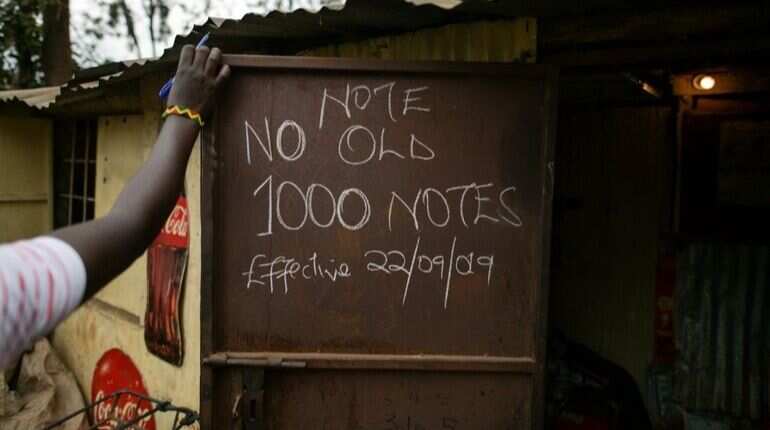 NOTE
NO OLD
1000 NOTES
Effective 22/09/019
Cola
Coca-Cola